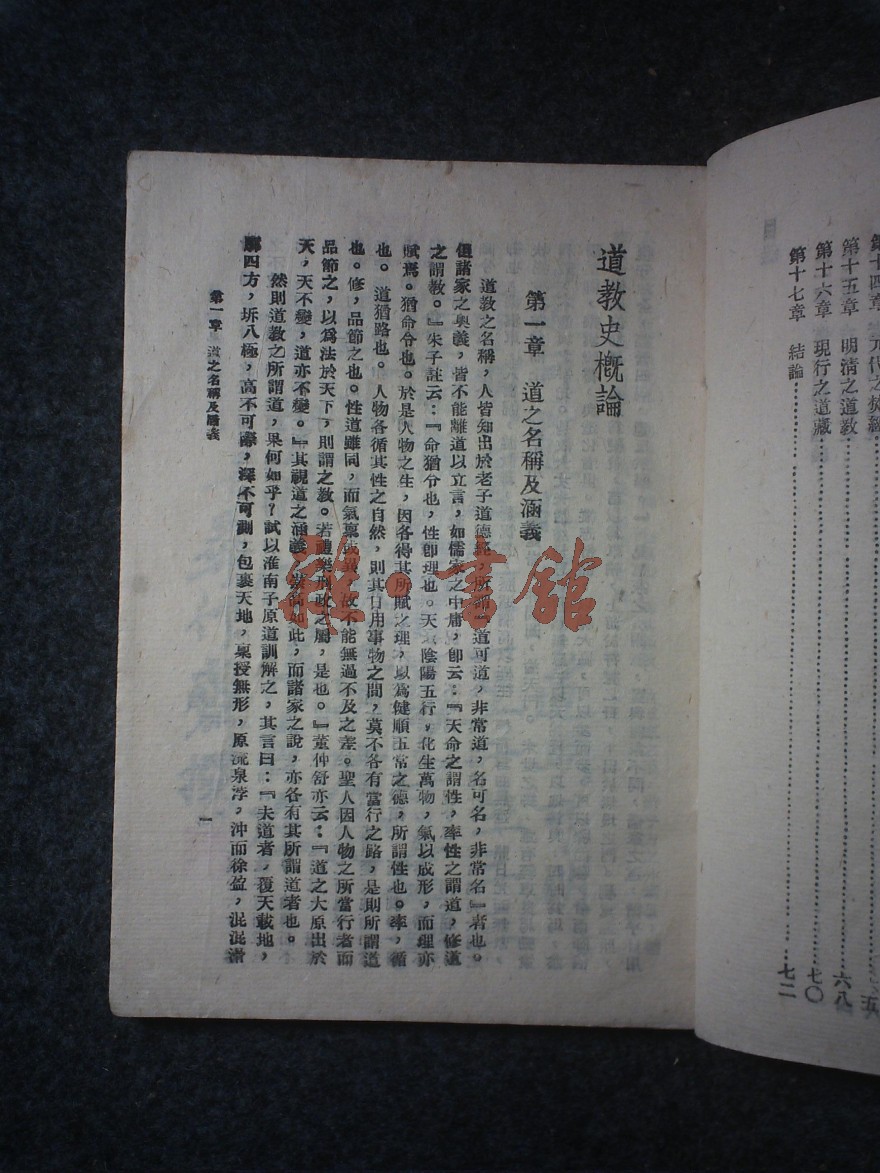 第十四章 元代之焚經
第十五章 明清之道教 六八
第十六章 現行之道藏 七〇
第十七章 結論 七二
道教史概論
第一章 道之名稱及涵義
道教之名稱，人皆知出於老子道德經，所謂『道可道，非常道，名可名，非常名』者也。
但諸家之奧義，皆不能離道以立言，如儒家之中庸，卽云：『天命之謂性，率性之謂道，修道
之謂敎。』朱子註云：『命猶令也，性卽理也。天以陰陽五行，化生萬物，氣以成形，而理亦
賦焉。猶命令也。於是人物之生，因各得其所賦之理，以爲健順五常之德，所謂性也。率，循
也。道猶路也。人物各循其性之自然，則其日用事物之間，莫不各有當行之路，是則所謂道
也。修，品節之也。性道雖同，而氣稟或異，故不能無過不及之差。聖人因人物之所當行者而
品節之，以爲法於天下，則謂之敎。若禮樂刑政之屬，是也。』董仲舒亦云：『道之大原出於
天，天不變，道亦不變。』其視道之涵義如此，而諸家之說，亦各有其所謂道者也。
然則道教之所謂道，果何如乎？試以淮南子原道訓解之，其言曰：『夫道者，覆天載地，
廓四方，坼八極，高不可際，深不可測，包裹天地，稟授無形，原流泉浡，沖而徐盈，混混滑
第一章 道之名稱及涵義
一
雜·書館